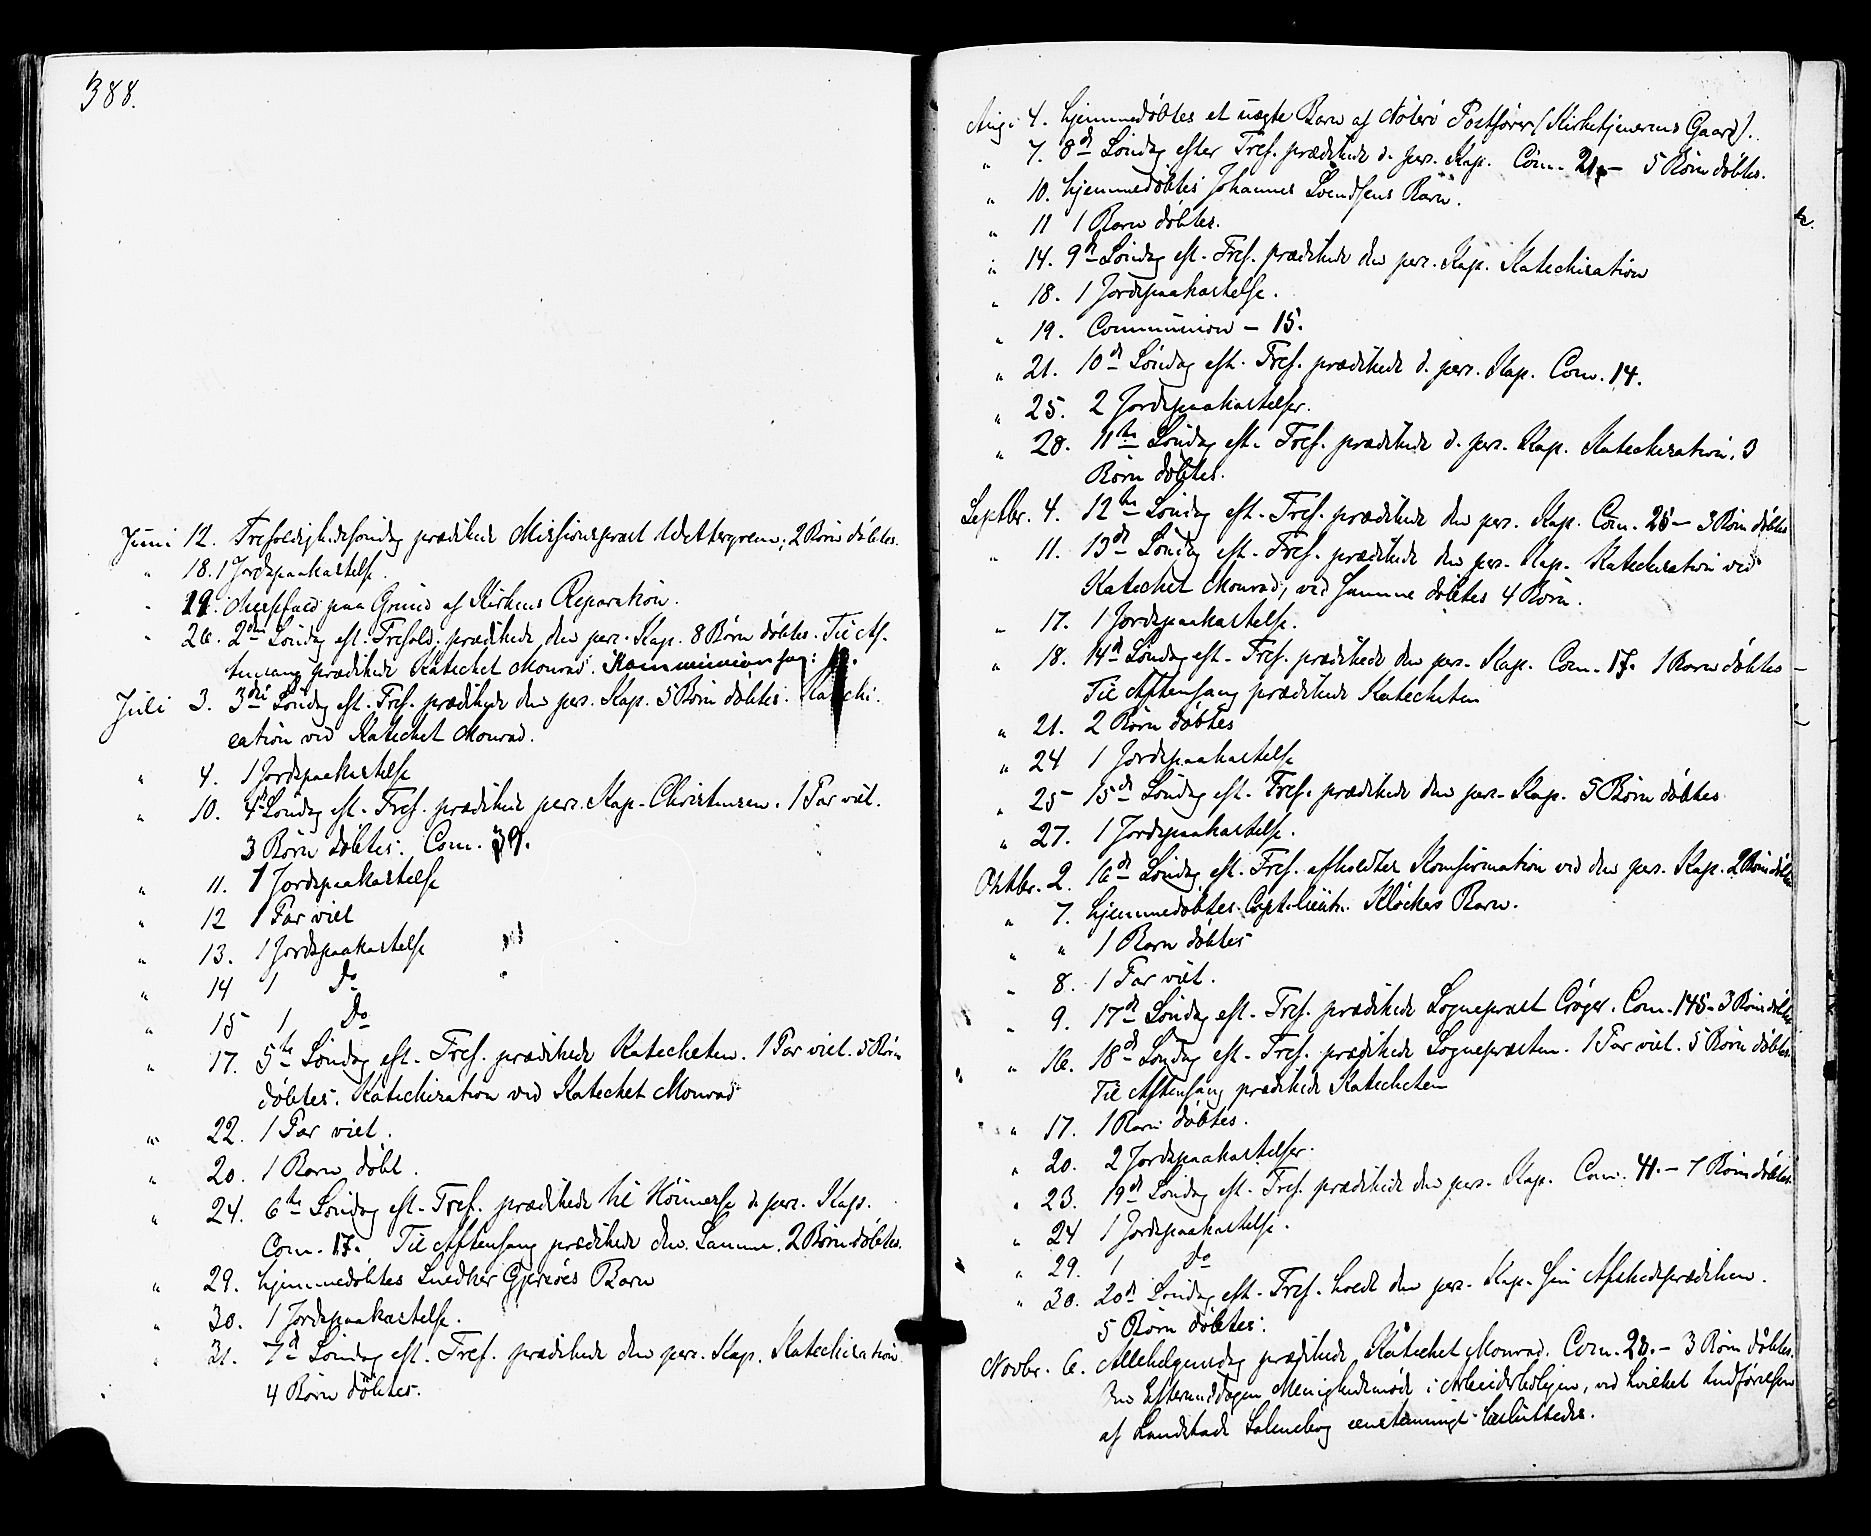 388.
Juni 12. Trefoldighedssöndag prædikede Missionspræst Wettergreen; 2 Börn döbtes.
" 18. 1 Jordspaakastelse.
" 19. Messefald paa Grund af Kirkens Reparation.
" 26. 2den Söndag eft. Trefold. prædikede den pers. Kap. 8 Börn döbtes. Til Af-
tensang prædikede Katechet Monrad. Kommunion
Juli 3. 3die Söndag eft. Tref. prædikede den pers. Kap. 5 Börn döbtes. Katechi-
sation ved Katechet Monrad.
" 4. 1 Jordspaakastelse
" 10. 4de Söndag eft. Tref. prædikede pers. Kap. Christensen. 1 Par viet.
3 Börn döbtes. Com. 39.
" 11. 1 Jordspaakastelse
" 12 1 Par viet
" 13. 1 Jordspaakastelse
" 14 1 Do
" 15 1 Do
" 17. 5te Söndag eft. Tref. prædikede Katecheten. 1 Par viet. 5 Börn
döbtes. Katechisation ved Katechet Monrad
" 22. 1 Par viet.
" 20. 1 Barn döbt.
" 24. 6te Söndag eft. Tref. prædikede til Höimesse d. pers. Kap.
Com. 17. Til Aftensang prædikede den Samme. 2 Börn döbtes.
" 29. hjemmedöbtes Snedker Barn
" 30. 1 Jordspaakastelse.
" 31. 7de Söndag eft. Tref. prædikede den pers. Kap. Katechisation
4 Börn döbtes.
Aug. 4. hjemmedöbtes et uægte Barn af Nöterö Postförer (Kirketjenerens Gaard).
" 7. 8de Söndag efter Tref. prædikede d. pers. Kap. Com. 21. – 5 Börn döbtes.
" 10. hjemmedöbtes Johannes Svendsens Barn.
" 11 1 Barn döbtes.
" 14. 9de Söndag eft. Tref. prædikede den pers. Kap. Katechisation
" 18. 1 Jordspaakastelse.
" 19. Communion – 15.
" 21. 10de Söndag eft. Tref. prædikede d. pers. Kap. Com. 14.
" 25. 2 Jordspaakastelser.
" 28. 11te Söndag eft. Tref. prædikede d. pers. Kap. Katechisation. 3
Börn döbtes.
Septbr. 4. 12te Söndag eft. Tref. prædikede den pers. Kap. Com. 25 – 3 Börn döbtes
" 11. 13de Söndag eft. Tref. prædikede den pers. Kap. Katechisation ved
Katechet Monrad, ved Samme döbtes 4 Börn.
" 17. 1 Jordspaakastelse.
" 18. 14de Söndag eft. Tref. prædikede den pers. Kap. Com. 17. 1 Barn döbtes –
Til Aftensang prædikede Katecheten
" 21. 2 Börn döbtes
" 24 1 Jordspaakastelse
" 25 15de Söndag eft. Tref. prædikede den pers. Kap. 5 Börn döbtes
" 27. 1 Jordspaakastelse.
Oktbr. 2. 16de Söndag eft. Tref. afholdtes Konfirmation ved den pers. Kap. 2 Börn döbtes
" 7. hjemmedöbtes Capt. lieutn. Klöckers Barn.
" " 1 Barn döbtes
" 8. 1 Par viet.
" 9. 17de Söndag eft. Tref. prædikede Sognepræst Cröger. Com. 145 – 3 Börn döbtes
" 16. 18de Söndag eft. Tref. prædikede Sognepræsten. 1 Par viet. 5 Börn döbtes.
Til Aftensang prædikede Katecheten
" 17. 1 Barn döbtes.
" 20. 2 Jordspaakastelser.
" 23. 19de Söndag eft. Tref. prædikede den pers. Kap. Com. 41. – 7 Börn döbtes.
" 24 1 Jordspaakastelse.
" 29. 1 Do
" 30. 20de Söndag eft. Tref. holdt den pers. Kap. sin Afskedsprædiken.
5 Börn döbtes.
Novbr. 6. Allehelgensdag prædikede Katechet Monrad. Com. 28. – 3 Börn döbtes.
Om Eftermiddagen Menighedsmöde i Arbeiderboligen, ved hvilket Indförelsen
af Landstads Salmebog eenstemmigt besluttedes.